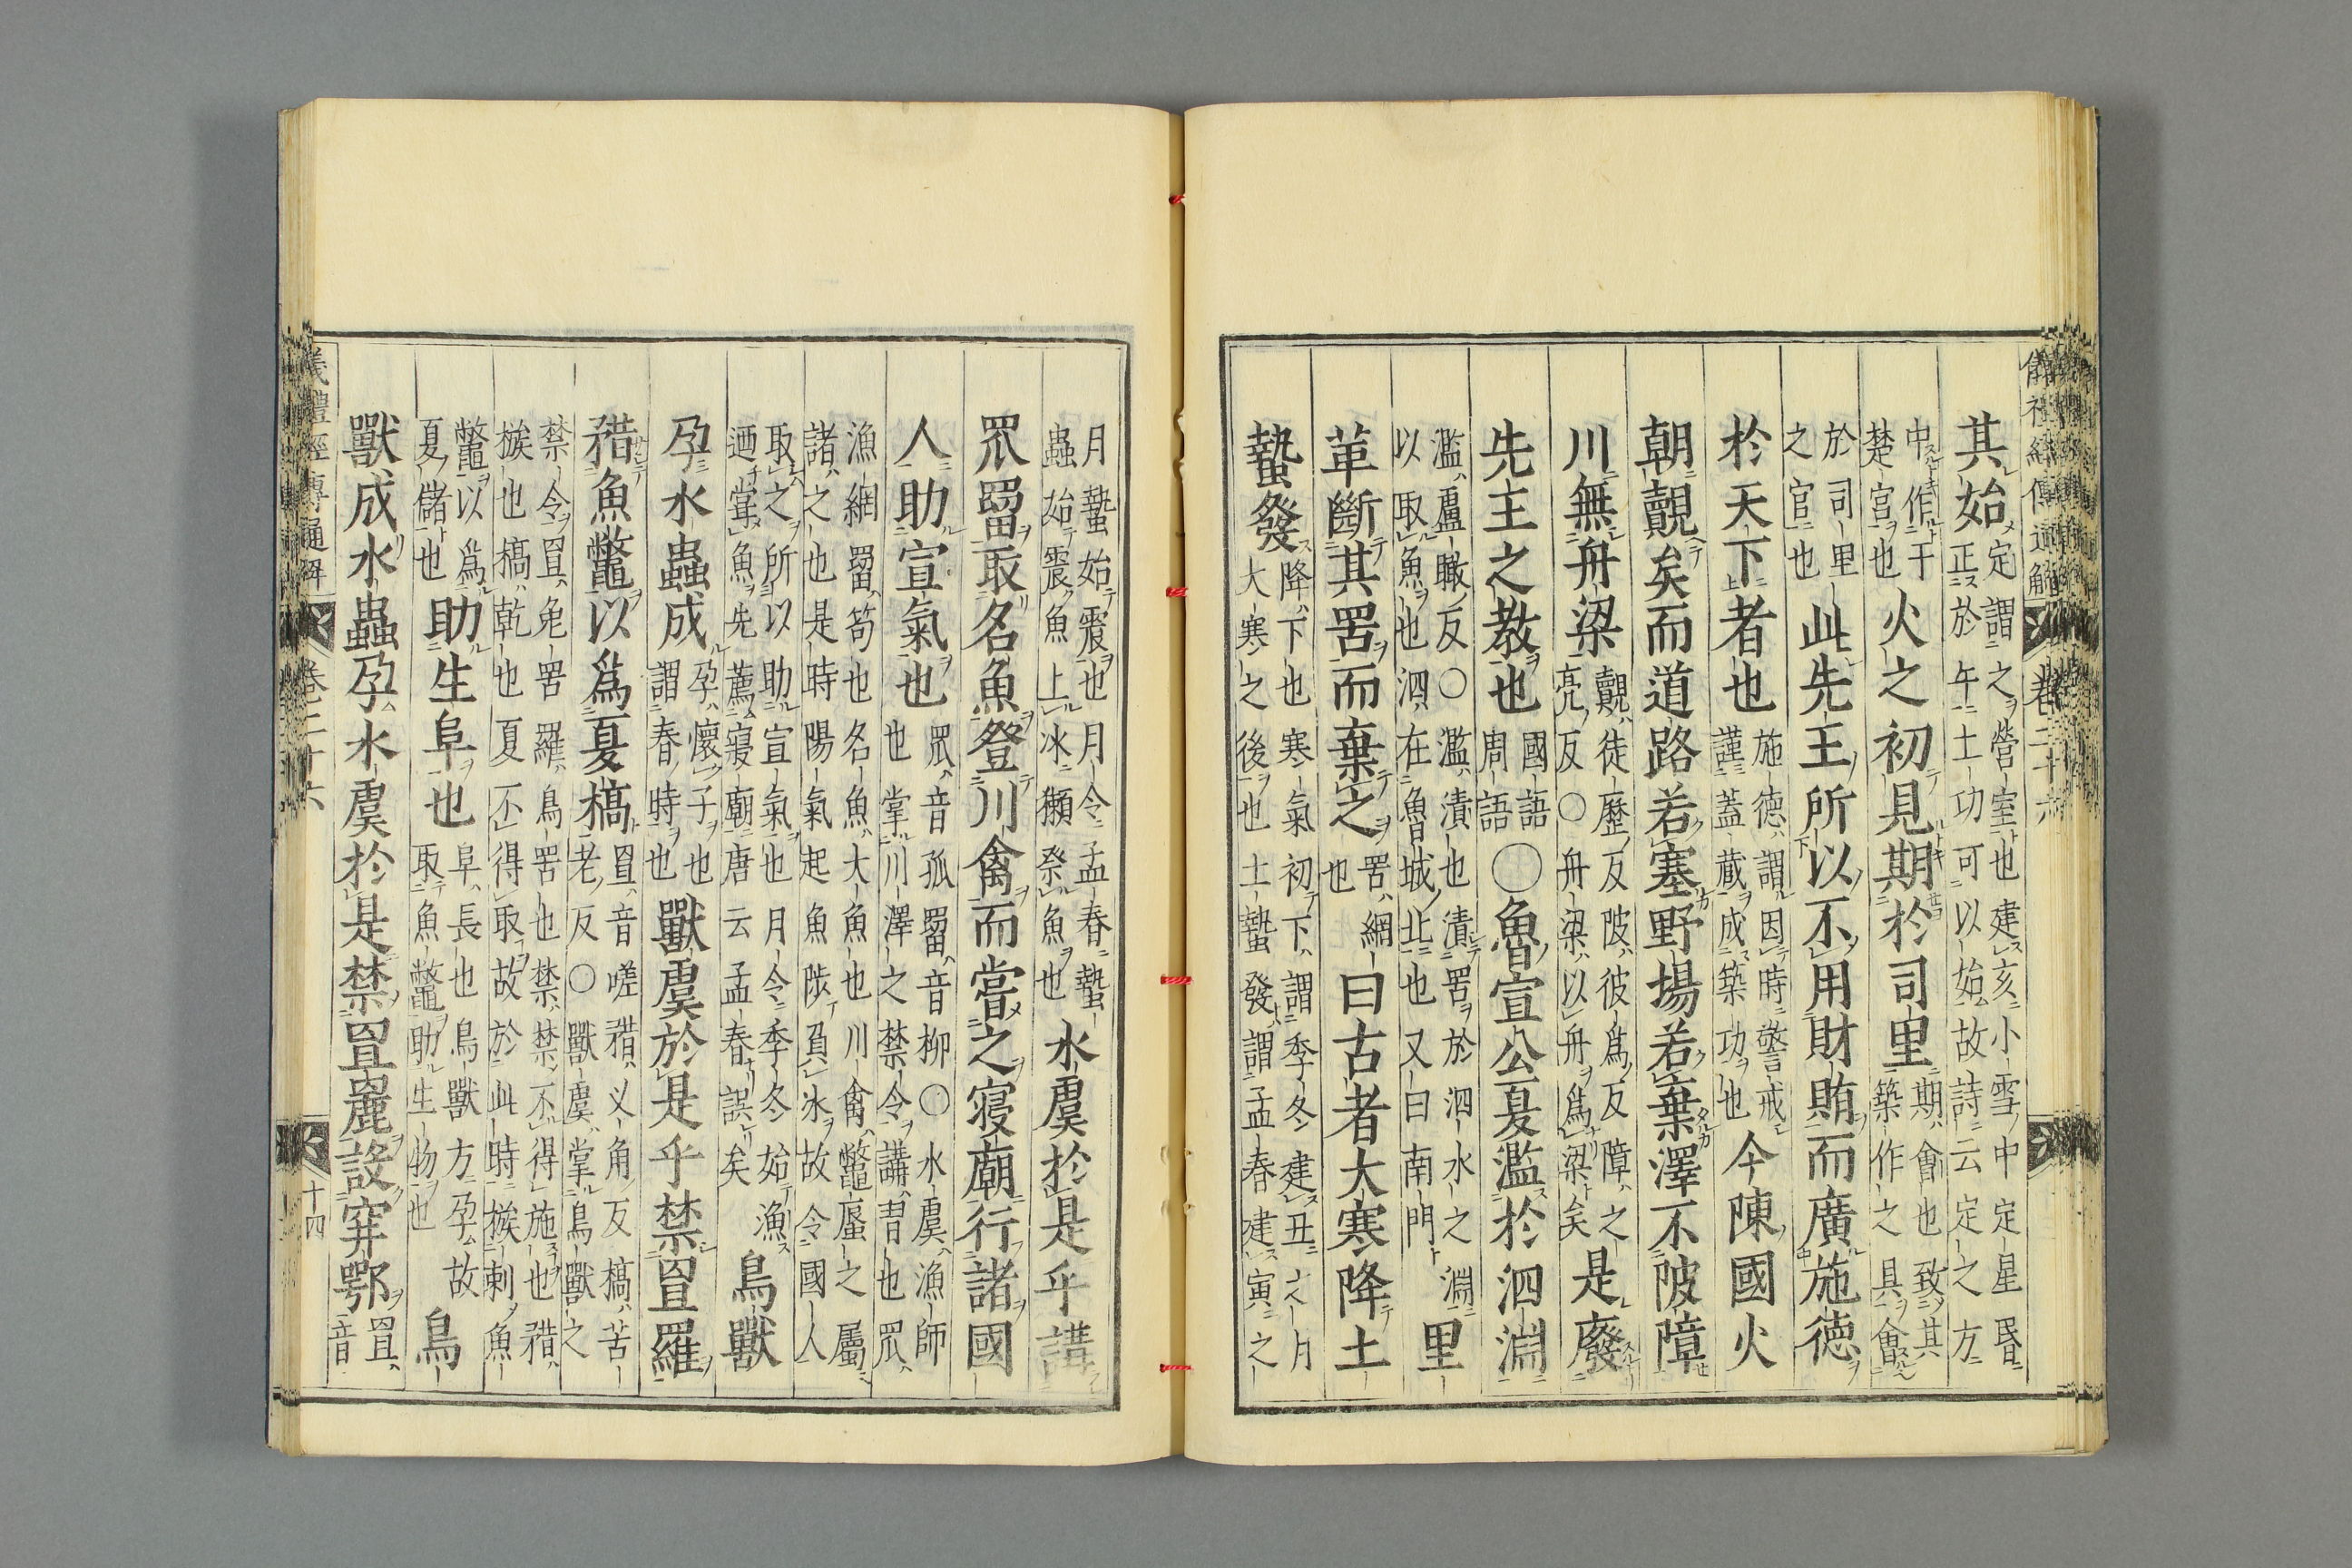 儀禮經傳通解 卷二十六
其始
定謂之營室也建亥小雪中定星昬
正於午土功可以始故詩云定之方
中作于
楚宮也
火之初見期於司里
期會也致其
築作之具會
於司里
之官也
此先王所以不用財賄而廣施德
於天下者也
施德謂因時警戒
謹蓋藏成築功也
今陳國火
朝覿矣而道路若塞野場若棄澤不陂障
川無舟梁
覿徒歷反陂彼爲反障之
亮反○舟梁以舟爲梁矣
是廢
先王之教也
國語
周語
○魯宣公夏濫於泗淵
濫盧瞰反○濫漬也漬罟於泗水之淵
以取魚也泗在魯城北也又曰南門
里
革斷其罟而棄之
罟網
也
曰古者大寒降土
蟄發
降下也寒氣初下謂季冬建丑之月
大寒之後也土蟄發謂孟春建寅之
月蟄始震也月令孟春蟄
蟲始震魚上冰獺祭魚也
水虞於是乎講
罛罶取名魚登川禽而嘗之寢廟行諸國
人助宣氣也
罛音孤罶音柳○水虞漁師
也掌川澤之禁令講習也罛
漁網罶笱也名魚大魚也川禽鼈蜃之屬
諸之也是時陽氣起魚陟負冰故令國人
取之所以助宣氣也月令季冬始漁
迺嘗魚先薦寢廟唐云孟春誤矣
鳥獸
孕水蟲成
孕懷子也
謂春時也
獸虞於是乎禁罝羅
矠魚鼈以爲夏槁
罝音嗟矠乂角反槁苦
老反○獸虞掌鳥獸之
禁令罝兔罟羅鳥罟也禁禁不得施也矠
㨖也槁乾也夏不得取故於此時㨖刺魚
鼈以爲
夏儲也
助生阜也
阜長也鳥獸方孕故
取魚鼈助生物也
鳥
獸成水蟲孕水虞於是禁罝麗設穽鄂
罝
音
儀禮經傳通解 卷二十六 十四